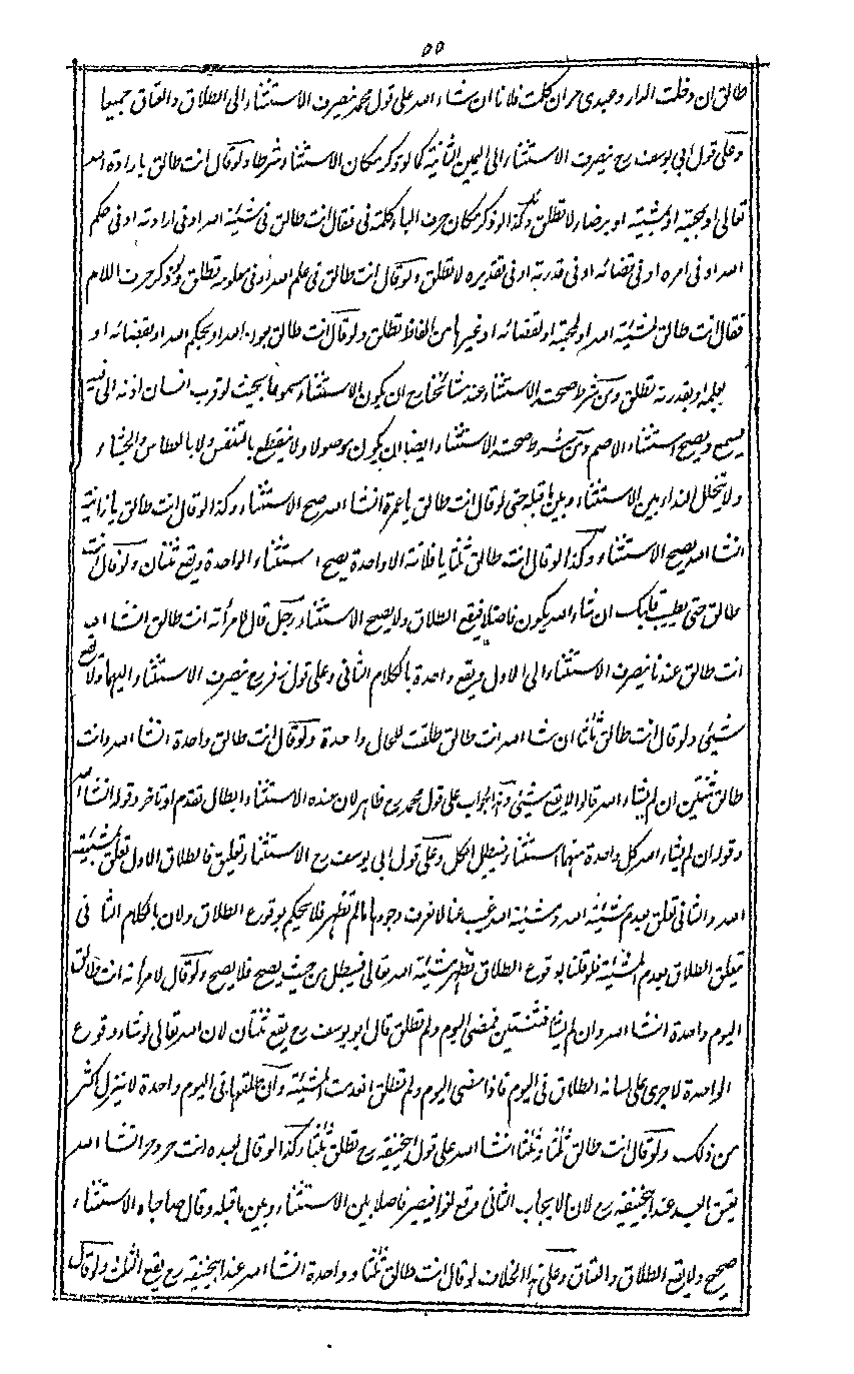 ٥٥
طالق ان دخلت الدار وعبدى حران كلمت فلانا ان شاء الله على قول محمد ينصرف الاستثناء الى الطلاق والعتاق جميعا
وعلى قول ابى يوسف رح ينصرف الاستثناء الى اليمين الثانية كما لو ذكر مكان الاستثناء شرطا ولو قال انت طالق بارادة الله
تعالى او بمحبته او بمشيته او برضاه لا تطلق وكذا لو ذكر مكان حرف الباء كلمة فى فقال انت طالق فى مشيئة الله او فى ارادته او فى حكم
الله او فى امره او فى قضائه او فى قدرته او فى تقديره لا تطلق ولو قال انت طالق فى علم الله او فى معلومه تطلق ولو ذكر حرف اللام
فقال انت طالق لمشيئة الله او لمحبته او لقضائه او غيرها من الفاظ تطلق ولو قال انت طالق الله او بحكم الله او بقضائه او
بعلمه او بقدرته تطلق ومن شرط صحة الاستثناء عند مشائخنا رح ان يكون الاستثناء مسموعا بحيث لو قرب انسان اذنه الى فيه
يسمع ويصح استثناء الاصم ومن شرط صحة الاستثناء ايضا ان يكون موصولا ولا ينقطع بالتنفس ولا بالعطاس والجشاء
ولا يتخلل النداء بين الاستثناء وبين ما قبله حتى لو قال انت طالق يا عمرة انشاء الله صح الاستثناء وكذا لو قال انت طالق يا زانية
انشاء الله يصح الاستثناء وكذا لو قال انت طالق ثلثا يا فلانة الا واحدة يصح استثناء الواحدة ويقع ثنتان ولو قال انت
طالق حتى يطيب قلبك ان شاء الله يكون فاصلا فيقع الطلاق ولا يصح الاستثناء رجل قال لامرأته انت طالق انشاء الله
انت طالق عندنا ينصرف الاستثناء الى الاول ويقع واحدة بالكلام الثانى وعلى قول زفر رح ينصرف الاستثناء اليهما ولا يقع
شيئى ولو قال انت طالق ثلثا ان شاء الله انت طالق طلقت للحال واحدة ولو قال انت طالق واحدة انشاء الله وانت
طالق ثنتين ان لم يشاء الله قالوا لا يقع شيئى وهذا الجواب على قول محمد رح ظاهر لان عنده الاستثناء ابطال تقدم او تاخر وقوله انشاء الله
وقوله ان لم يشاء الله كل واحدة منهما استثناء فيبطل الكل وعلى قول ابى يوسف رح الاستثناء تعليق فالطلاق الاول تعلق بمشيئة
الله والثانى تعلق بعدم مشيئة الله ومشيئة الله غيب عنا لا نعرف وجودها ما لم تظهر فلا يحكم بوقوع الطلاق ولان بالكلام الثانى
تعليق الطلاق بعدم المشيئة فلو قلنا بوقوع الطلاق تظهر مشيئة الله تعالى فيبطل من حيث يصح فلا يصح ولو قال لامرأته انت طالق
اليوم واحدة انشاء الله وان لم يشأ فثنتين فمضى اليوم ولم تطلق قال ابو يوسف رح يقع ثنتان لان الله تعالى لو شاء وقوع
الواحدة لاجرى على لسانه الطلاق فى اليوم فاذا مضى اليوم ولم تطلق انعدمت المشيئة وان طلقها فى اليوم واحدة لا ينزل اكثر
من ذلك ولو قال انت طالق ثلثا وثلثا انشاء الله على قول ابيحنيفه رح تطلق ثلثا وكذا لو قال لعبده انت حر وحر انشاء الله
يعتق العبد عند ابيحنيفه رح لان الايجاب الثانى وقع لغوا فيصير فاصلا بين الاستثناء وبين ما قبله وقال صاحباه الاستثناء
صحيح ولا يقع الطلاق والعتاق وعلى هذا الخلاف لو قال انت طالق ثلثا وواحدة انشاء الله عند ابيحنيفه رح يقع الثلث ولو قال